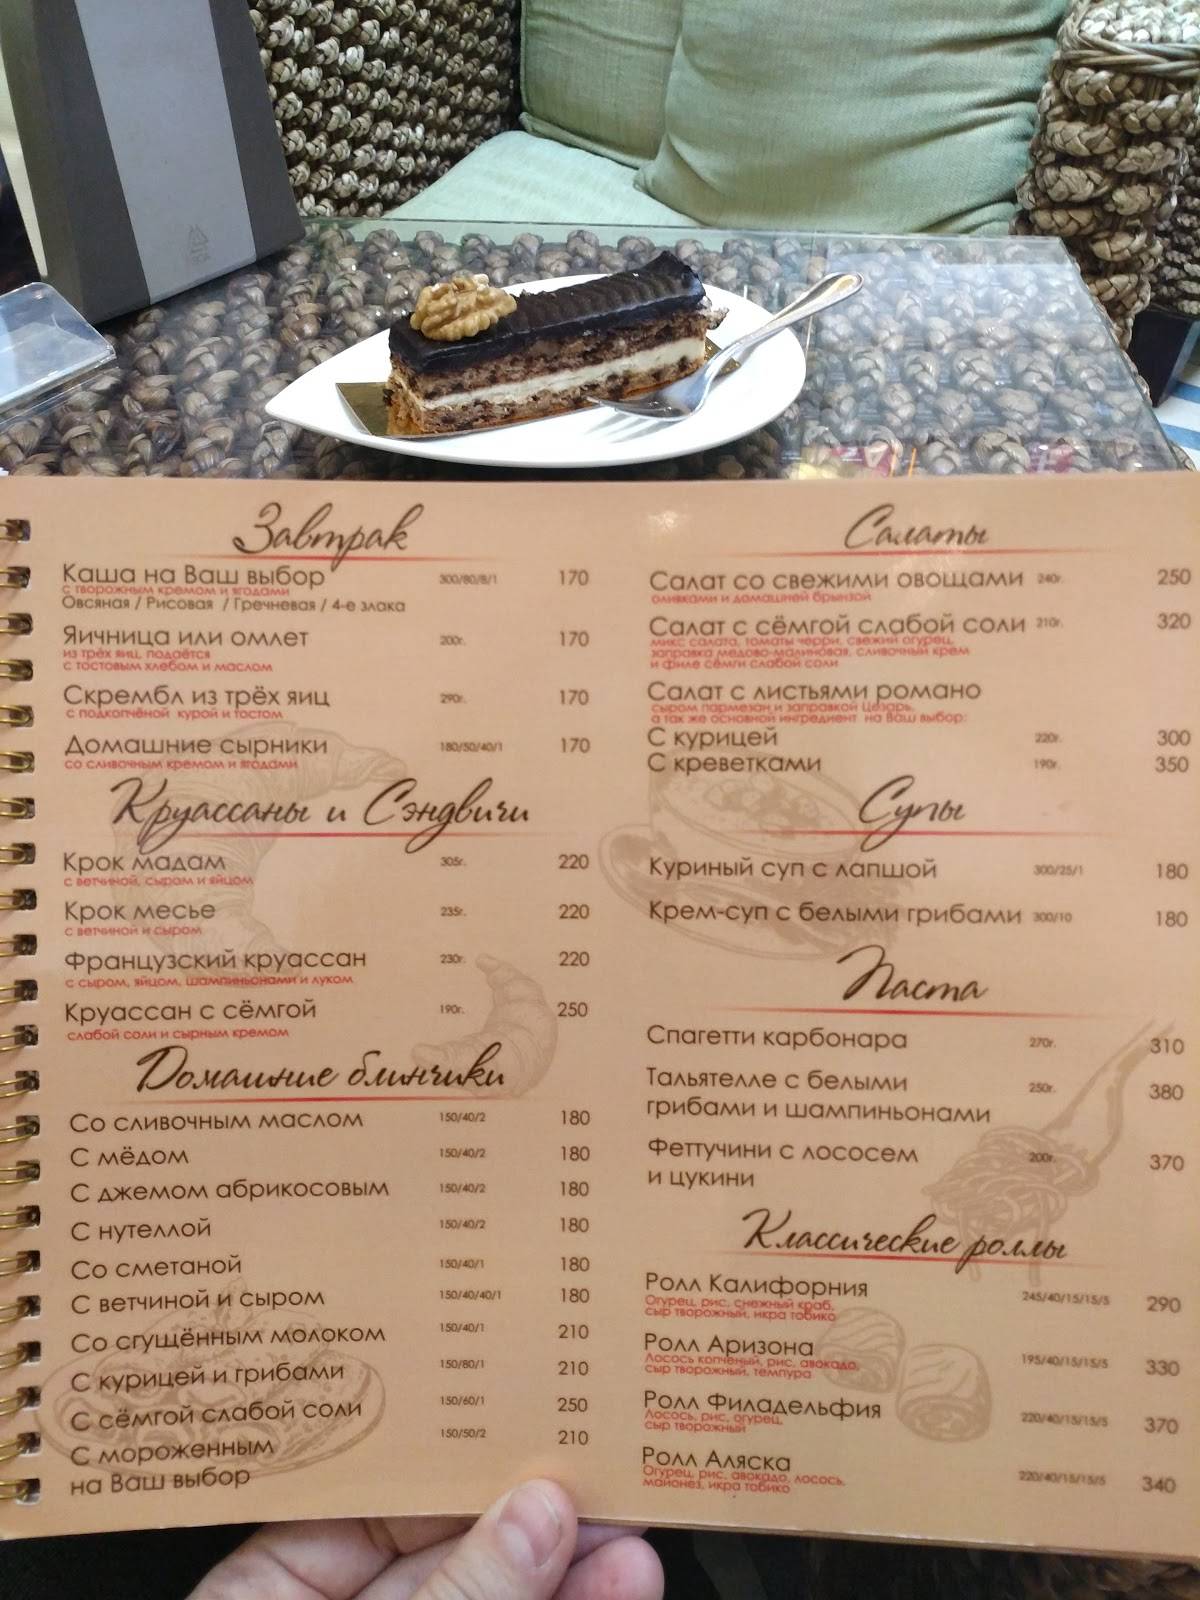 Завтрак
Каша на Ваш выбор 300/80/8/1 170
с творожным кремом и ягодами
Овсяная / Рисовая / Гречневая / 4-е злака
Яичница или омлет 200г. 170
из трёх яиц, подаётся
с тостовым хлебом и маслом
Скрембл из трёх яиц 290г. 170
с подкопчёной курой и тостом
Домашние сырники 180/50/40/1 170
со сливочным кремом и ягодами
Круассаны и Сэндвичи
Крок мадам 305г. 220
с ветчиной, сыром и яйцом
Крок месье 235г. 220
с ветчиной и сыром
Французский круассан 230г. 220
с сыром, яйцом, шампиньонами и луком
Круассан с сёмгой 190г. 250
слабой соли и сырным кремом
Домашние блинчики
Со сливочным маслом 150/40/2 180
С мёдом 150/40/2 180
С джемом абрикосовым 150/40/2 180
С нутеллой 150/40/2 180
Со сметаной 150/40/1 180
С ветчиной и сыром 150/40/40/1 180
Со сгущённым молоком 150/40/1 210
С курицей и грибами 150/80/1 210
С сёмгой слабой соли 150/60/1 250
С мороженным 150/50/2 210
на Ваш выбор
Салаты
Салат со свежими овощами 240г. 250
оливками и домашней брынзой
Салат с сёмгой слабой соли 210г. 320
микс салата, томаты черри, свежий огурец,
заправка медово-малиновая, сливочный крем
и филе сёмги слабой соли
Салат с листьями романо
сыром пармезан и заправкой Цезарь,
а так же основной ингредиент на Ваш выбор:
С курицей 220г. 300
С креветками 190г. 350
Супы
Куриный суп с лапшой 300/25/1 180
Крем-суп с белыми грибами 300/10 180
Паста
Спагетти карбонара 270г. 310
Тальятелле с белыми 250г. 380
грибами и шампиньонами
Феттучини с лососем 200г. 370
и цукини
Классические роллы
Ролл Калифорния 245/40/15/15/5 290
Огурец, рис, снежный краб,
сыр творожный, икра тобико
Ролл Аризона 195/40/15/15/5 330
Лосось копчёный, рис, авокадо,
сыр творожный, темпура
Ролл Филадельфия 220/40/15/15/5 370
Лосось, рис, огурец,
сыр творожный
Ролл Аляска 220/40/15/15/5 340
Огурец, рис, авокадо, лосось,
майонез, икра тобико